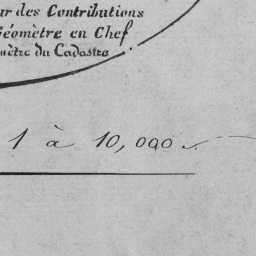 ur des Contributions
Géomètre en Chef
mètre du Cadastre.
1 à 10,000